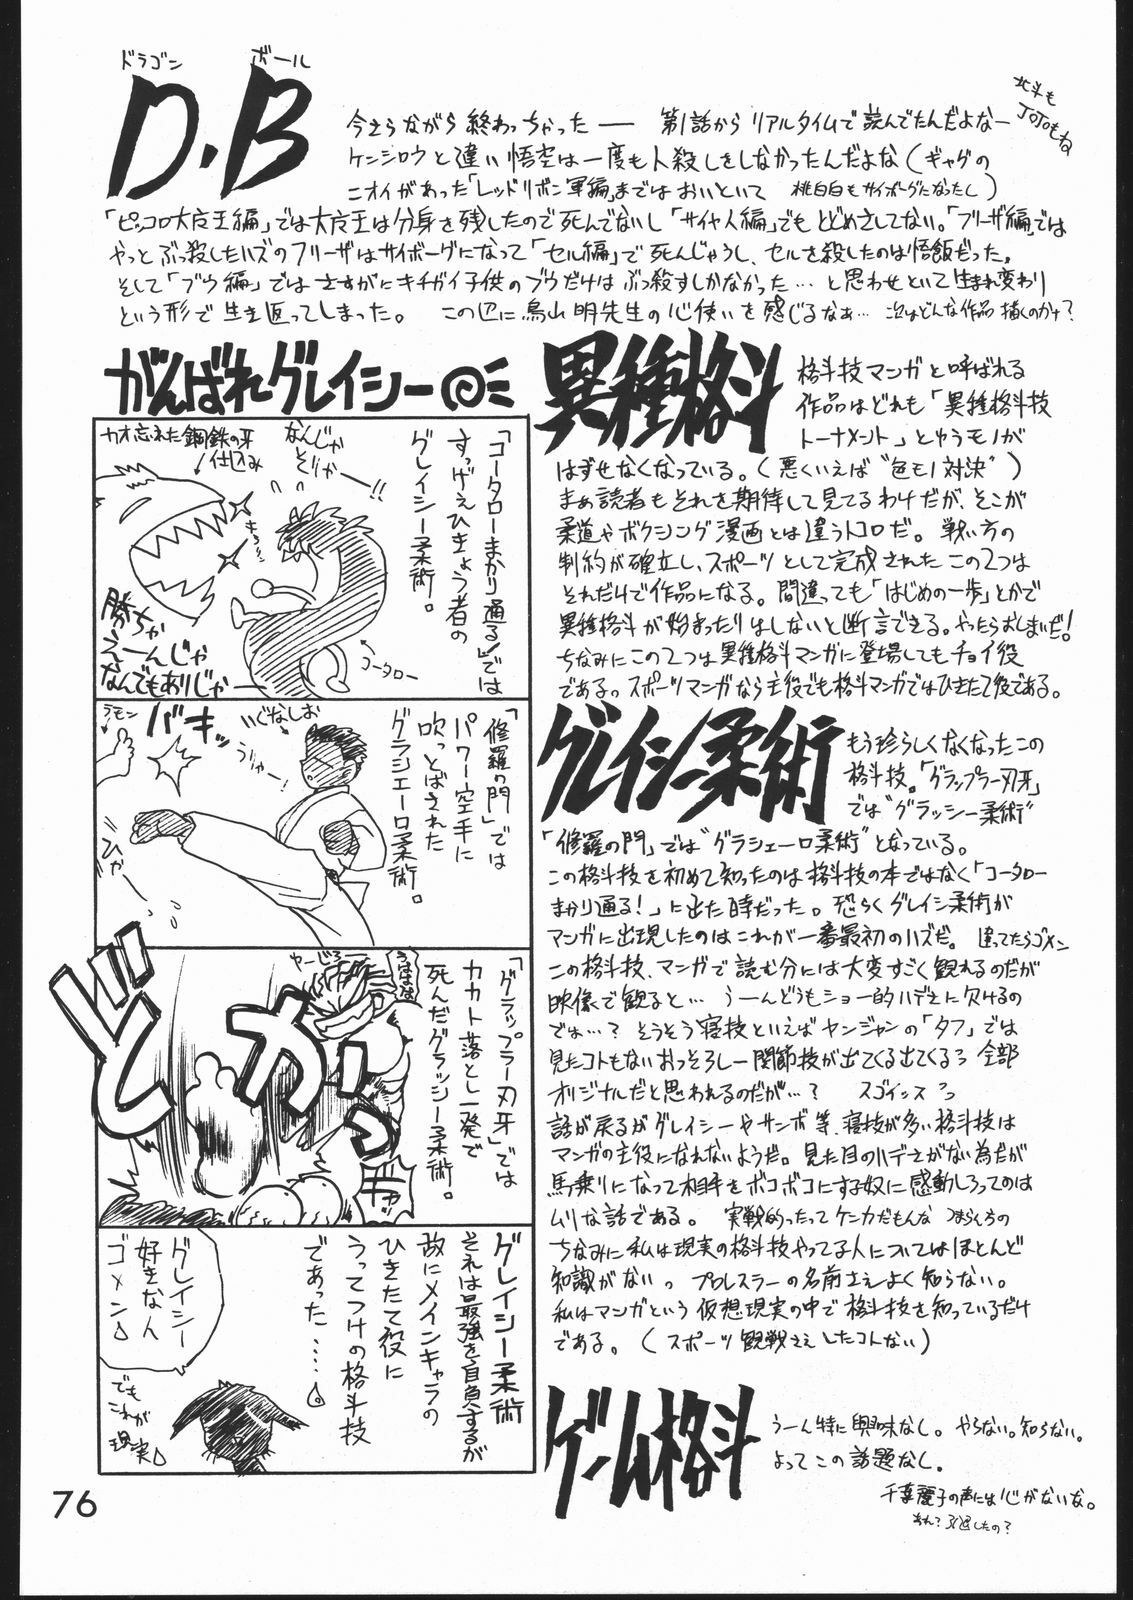 ドラゴン ボール
D.B
北斗も
JOJOもね
今さらながら終わっちゃったー 第1話からリアルタイムで読んでたんだよなー
ケンシロウと違い悟空は一度も人殺しをしなかったんだよな(ギャグの
ニオイがあった「レッドリボン軍編」まではおいといて 桃白白もサイボーグになったし)
「ピッコロ大魔王編」では大魔王は分身を残したので死んでないし「サイヤ人編」でもとどめさしてない。「フリーザ編」では
やっとぶっ殺したハズのフリーザはサイボーグになって「セル編」で死んじゃうし、セルを殺したのは悟飯だった。
そして「ブウ編」ではさすがにキチガイ子供のブウだけはぶっ殺すしかなかった…と思わせといて生まれ変わり
という形で生き返ってしまった。 この辺に鳥山明先生の心使いを感じるなぁ… 次はどんな作品描くのかナ?
がんばれグレイシー
「コータローまかり通る!」では
すっげえひきょう者の
グレイシー柔術。
カオ忘れた
鋼鉄の牙
仕込み
なんじゃ
そりゃー!!
勝ちゃ
えーんじゃ
なんでもありじゃー
コータロー
「修羅の門」では
パワー空手に
吹っとばされた
グラシエーロ柔術。
ラモン
バキッ
いぐなしお
うりゃー!
ひゃー
「グラップラー刃牙」では
カカト落とし一発で
死んだグラッシー柔術。
どかっ
グレイシー柔術
それは最強を自負するが
故にメインキャラの
ひきたて役に
うってつけの格斗技
であった……
グレイシー
好きな人
ゴメン
でも
これが
現実
異種格斗
格斗技マンガと呼ばれる
作品はどれも「異種格斗技
トーナメント」とゆうモノが
はずせなくなっている。(悪くいえば“色モノ対決”)
まぁ読者もそれを期待して見てるわけだが、そこが
柔道やボクシング漫画とは違うトコロだ。戦い方の
制約が確立し、スポーツとして完成されたこの2つは
それだけで作品になる。間違っても「はじめの一歩」とかで
異種格斗が始まったりはしないと断言できる。やったらおしまいだ!
ちなみにこの2つは異種格斗マンガに登場してもチョイ役
である。スポーツマンガなら主役でも格斗マンガではひきたて役である。
グレイシー柔術
もう珍らしくなくなったこの
格斗技。「グラップラー刃牙」
では“グラッシー柔術”
「修羅の門」では“グラシエーロ柔術”となっている。
この格斗技を初めて知ったのは格斗技の本ではなく「コータロー
まかり通る!」に出た時だった。恐らくグレイシー柔術が
マンガに出現したのはこれが一番最初のハズだ。違ってたらゴメン
この格斗技、マンガで読む分には大変すごく観れるのだが
映像で観ると… うーんどうもショー的ハデさに欠けるの
では…? そうそう寝技といえばヤンジャンの「タフ」では
見たコトもないおっそろしー関節技が出てくる出てくる 全部
オリジナルだと思われるのだが…? スゴイッス
話が戻るがグレイシーやサンボ等、寝技が多い格斗技は
マンガの主役になれないようだ。見た目のハデさがない為だが
馬乗りになって相手をボコボコにする奴に感動しろってのは
ムリな話である。 実戦的ったってケンカだもんな つまらんちの
ちなみに私は現実の格斗技やってる人についてはほとんど
知識がない。プロレスラーの名前さえよく知らない。
私はマンガという仮想現実の中で格斗技を知っているだけ
である。(スポーツ観戦さえしたコトない)
ゲーム格斗
うーん特に興味なし。やらない。知らない。
よってこの話題なし。
千葉麗子の声には心がないな。
あれ? 引退したの?
76